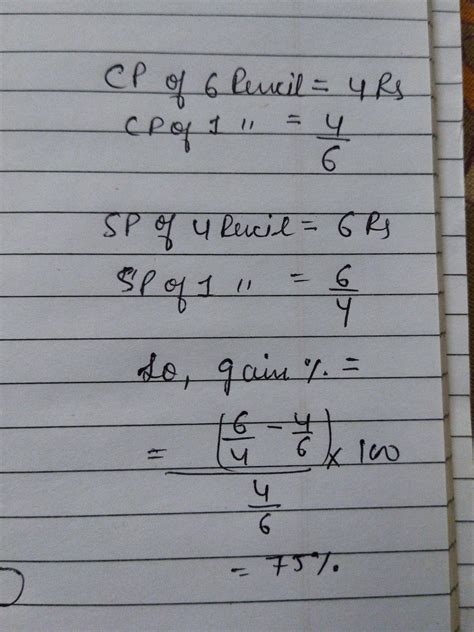 CP of 6 Pencil = 4 Rs
CP of 1 " = 4/6
SP of 4 Pencil = 6 Rs
SP of 1 " = 6/4
So, gain % =
= (6/4 - 4/6)/(4/6) x 100
= 75%.